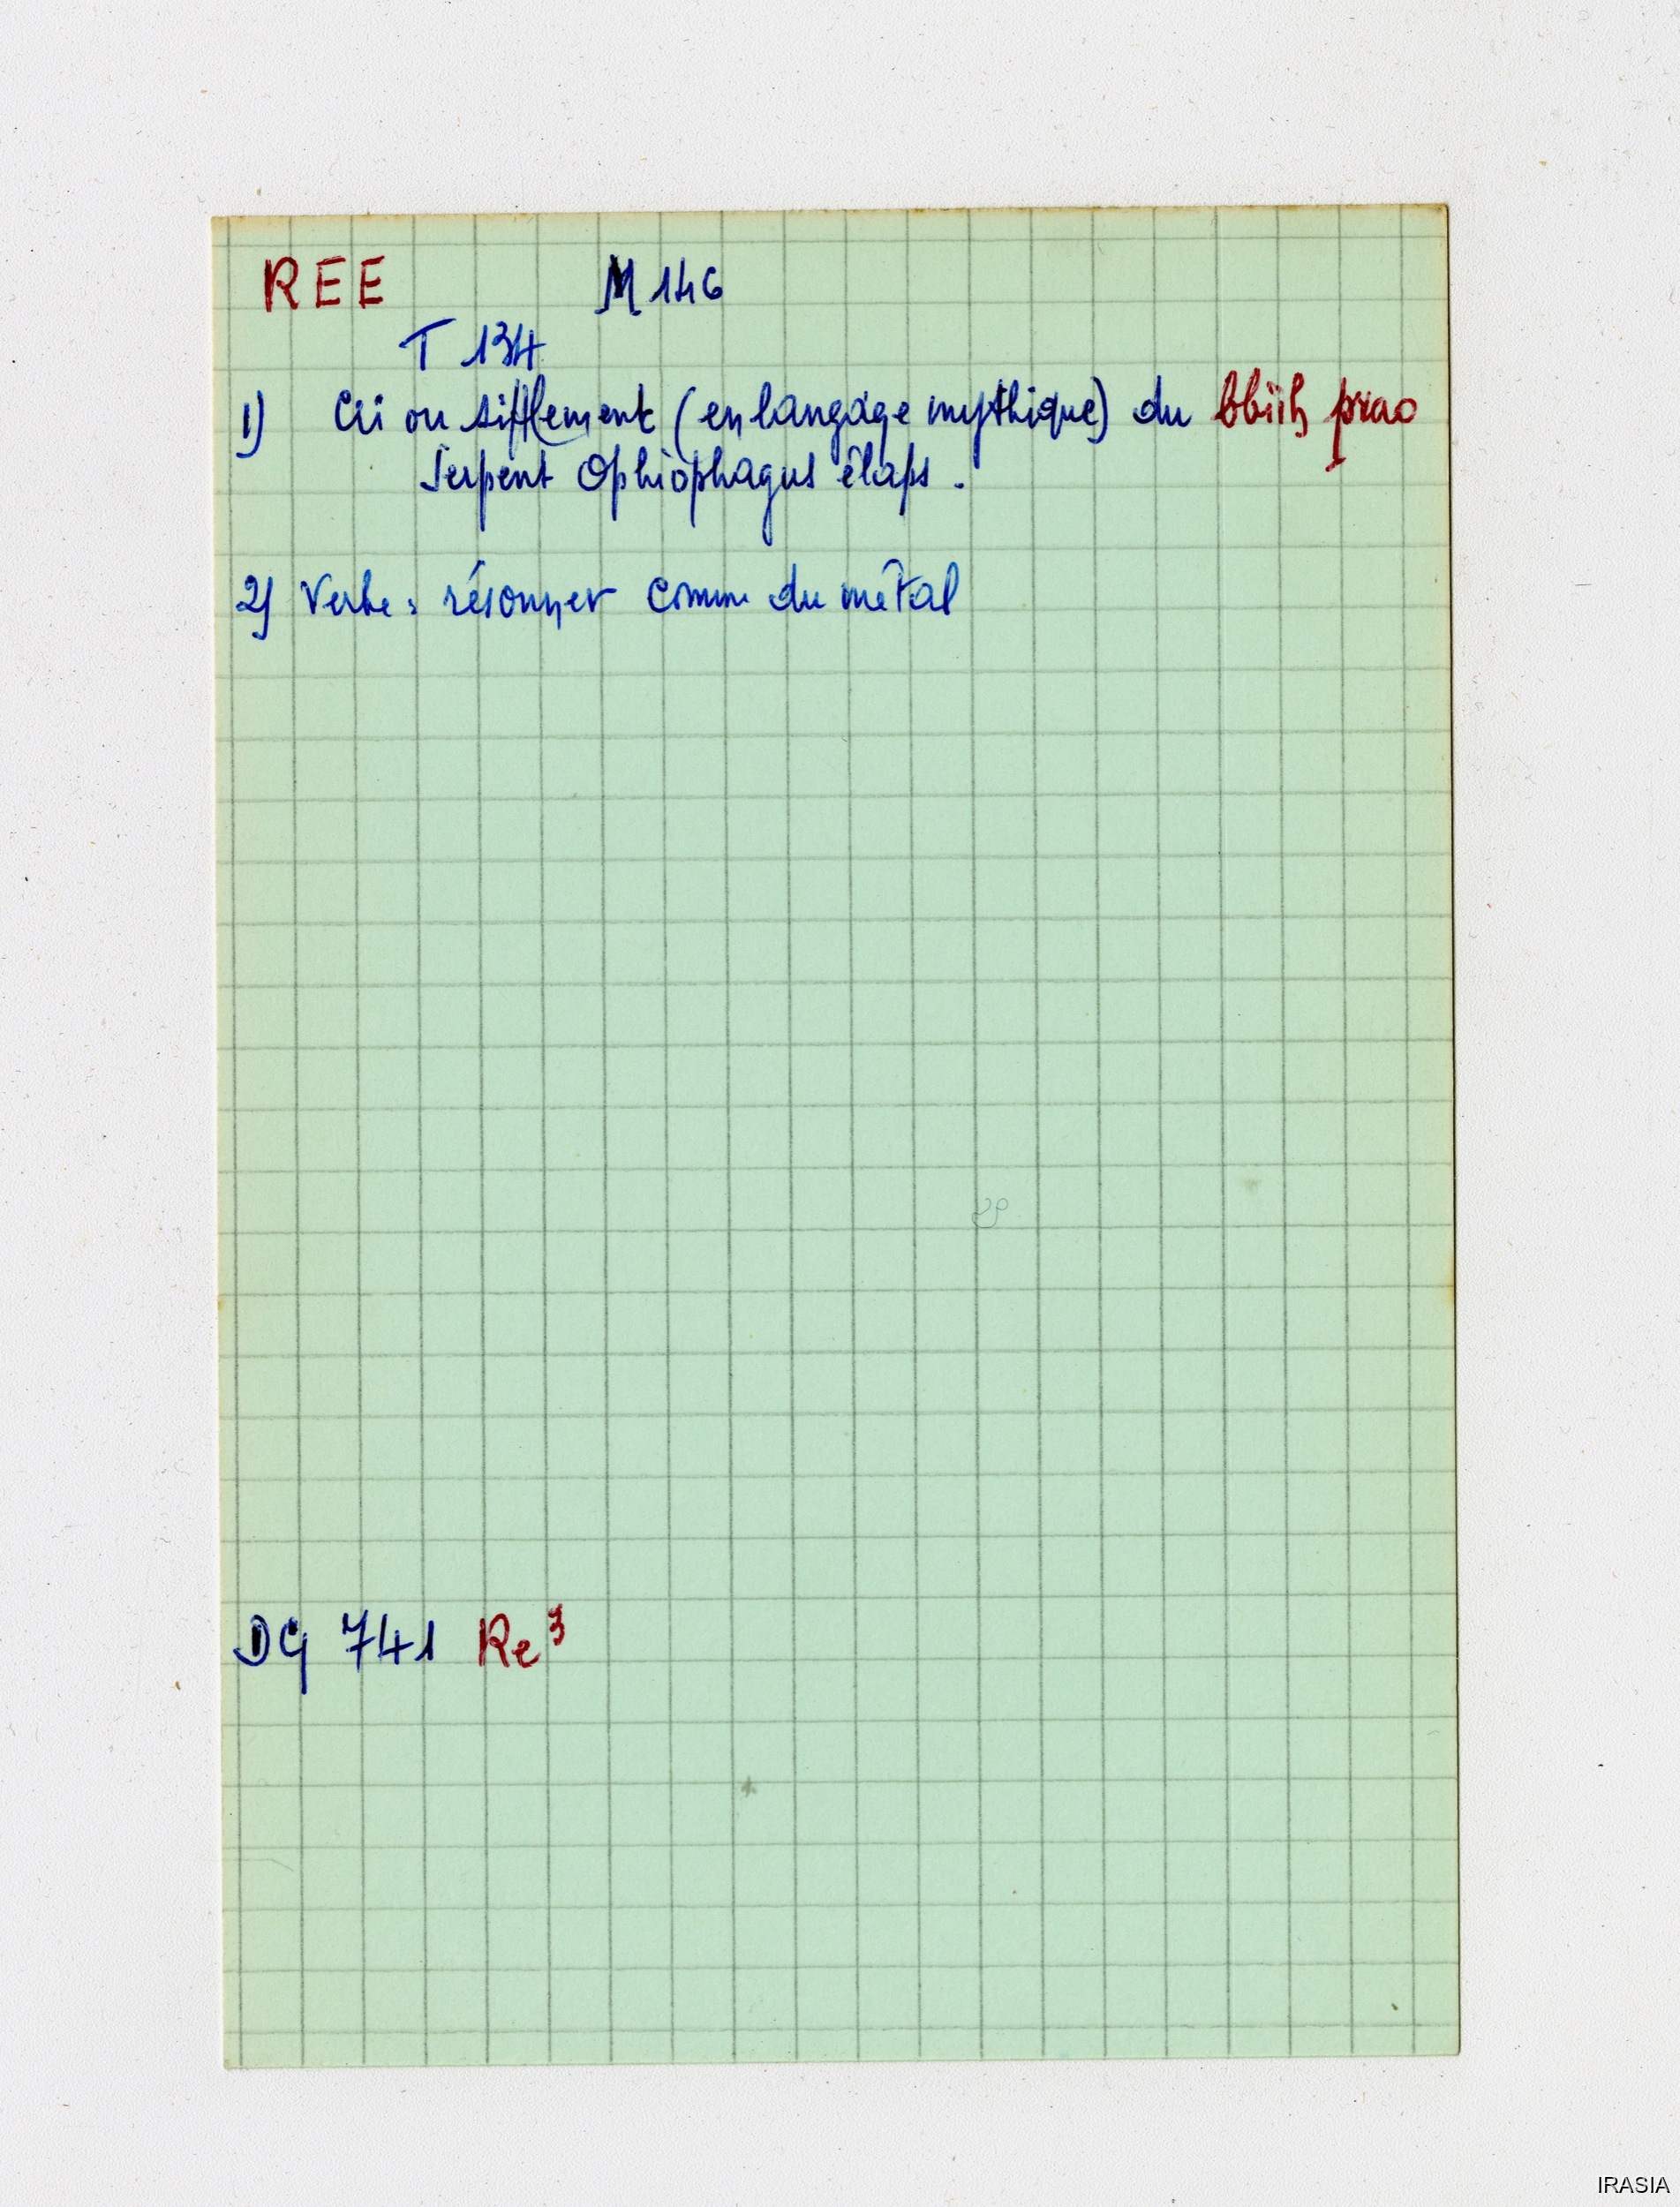 REE M 146
T 134
1) Cri ou sifflement (en langage mythique) du bbiih prao
Serpent Ophiophagus élaps.
2) Verbe : résonner comme du métal
DG 741 Re³
IRASIA